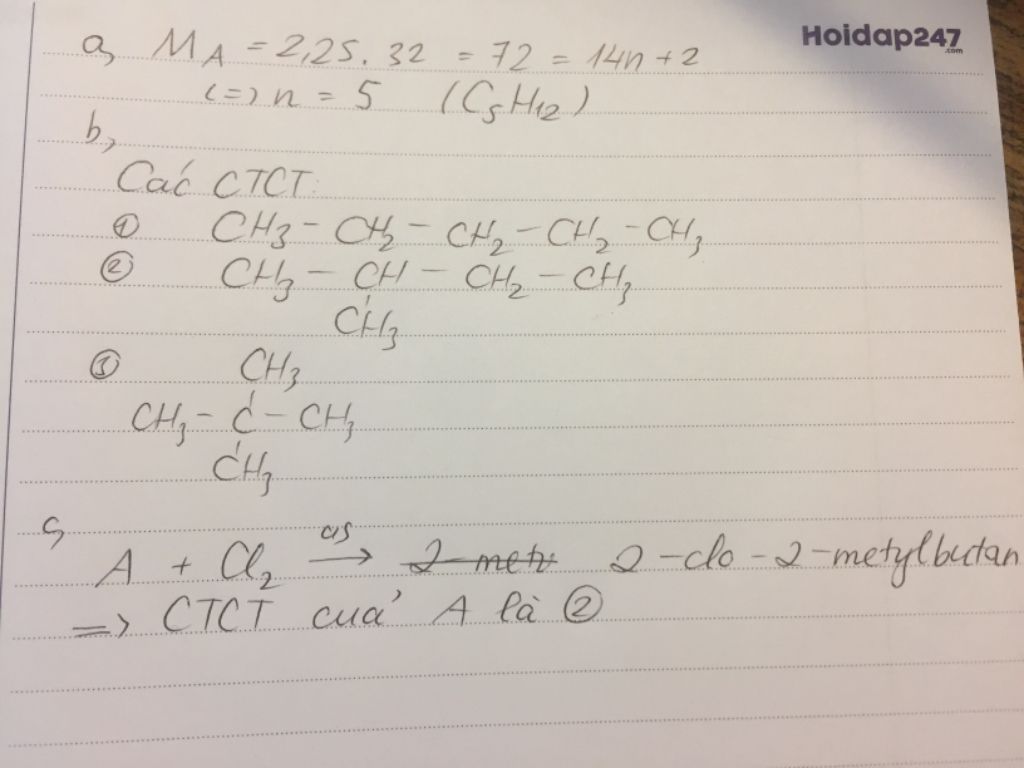 Hoidap247
.com
a, M_A = 2,25. 32 = 72 = 14n + 2
(=) n = 5 (C₅H₁₂)
b,
Các CTCT:
① CH₃ - CH₂ - CH₂ - CH₂ - CH₃
② CH₃ - CH - CH₂ - CH₃
CH₃
③ CH₃
CH₃ - C - CH₃
CH₃
c,
as
A + Cl₂ → 2-metv 2-clo-2-metylbutan
=> CTCT cuả A là ②